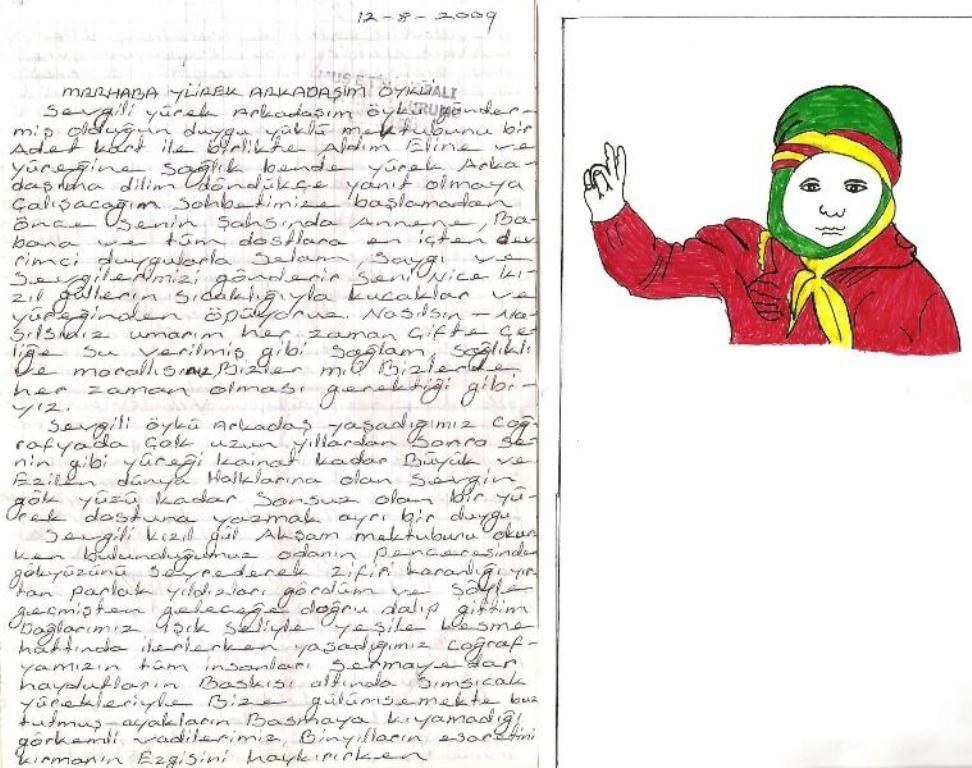 12-8-2009
MERHABA YÜREK ARKADAŞIM ÖYKÜ
Sevgili yürek Arkadaşım öykü gönder-
miş olduğun duygu yüklü mektubunu bir
Adet kart ile birlikte Aldım Eline ve
yüreğine sağlık bende yürek Arka-
daşıma dilim döndükçe yanıt olmaya
Çalışacağım sohbetimize başlamadan
önce senin şahsında Annene, Ba-
bana ve tüm dostlara en içten dev-
rimci duygularla selam saygı ve
sevgilerimizi gönderir seni Nice kı-
zıl güllerin sıcaklığıyla kucaklar ve
yüreğinden öpüyoruz. Nasılsın - Na-
sılsınız umarım her zaman Çifte Çe-
liğe su verilmiş gibi sağlam, sağlıklı
ve morallisiniz, Bizler mi? Bizlerde
her zaman olması gerektiği gibi-
yiz.
Sevgili öykü Arkadaş yaşadığımız Coğ-
rafyada Çok uzun yıllardan sonra se-
nin gibi yüreği kainat kadar Büyük ve
Ezilen dünya Halklarına olan sevgin
gök yüzü kadar sonsuz olan bir yü-
rek dostuna yazmak ayrı bir duygu
Sevgili kızıl gül Akşam mektubunu okur-
ken bulunduğumuz odanın penceresinden
gökyüzünü seyrederek zifiri karanlığı yır-
tan parlak yıldızları gördüm ve şöyle
geçmişten geleceğe doğru dalıp gittim
Dağlarımız ışık seliyle yeşile kesme
hattında ilerlerken yaşadığımız Coğraf-
yamızın tüm insanları sermayedar
haydutların Baskısı altında sımsıcak
yürekleriyle Bize gülümsemekte buz
tutmuş ayakların Basmaya kıyamadığı
görkemli vadilerimiz, Binyılların esaretini
kırmanın Ezgisini haykırırken